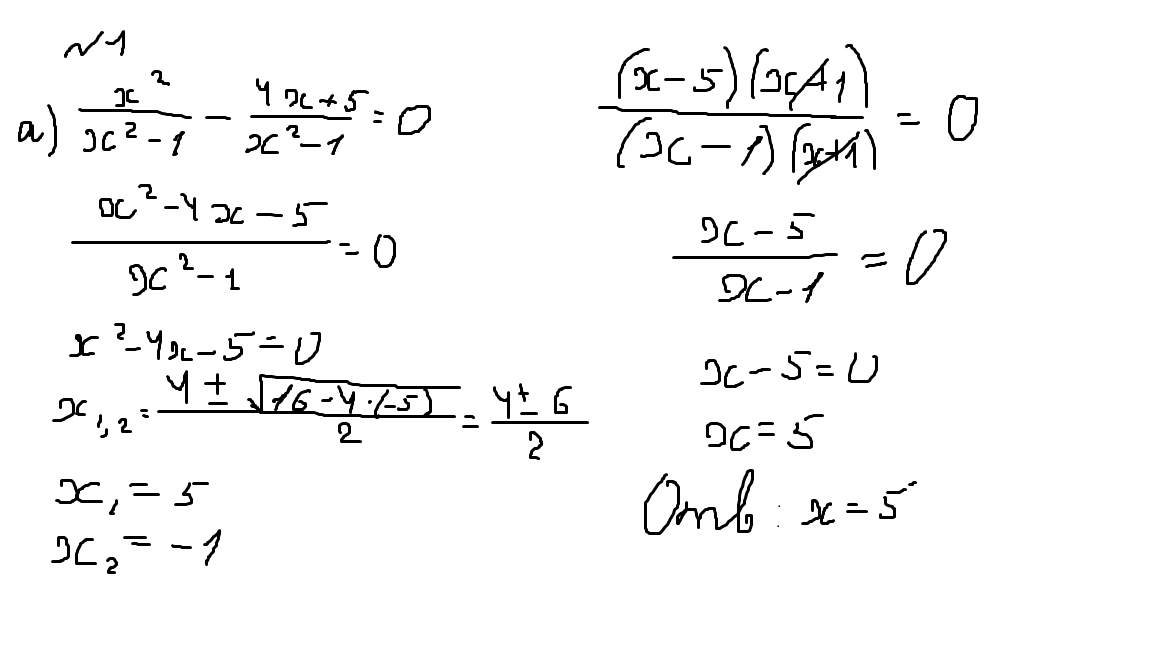 №1
а) x²/(x²-1) - (4x+5)/(x²-1) = 0
(x²-4x-5)/(x²-1) = 0
x²-4x-5=0
x₁,₂ = (4±√(16-4·(-5)))/2 = (4±6)/2
x₁ = 5
x₂ = -1
((x-5)(x+1))/((x-1)(x+1)) = 0
(x-5)/(x-1) = 0
x-5=0
x=5
Отв: x=5